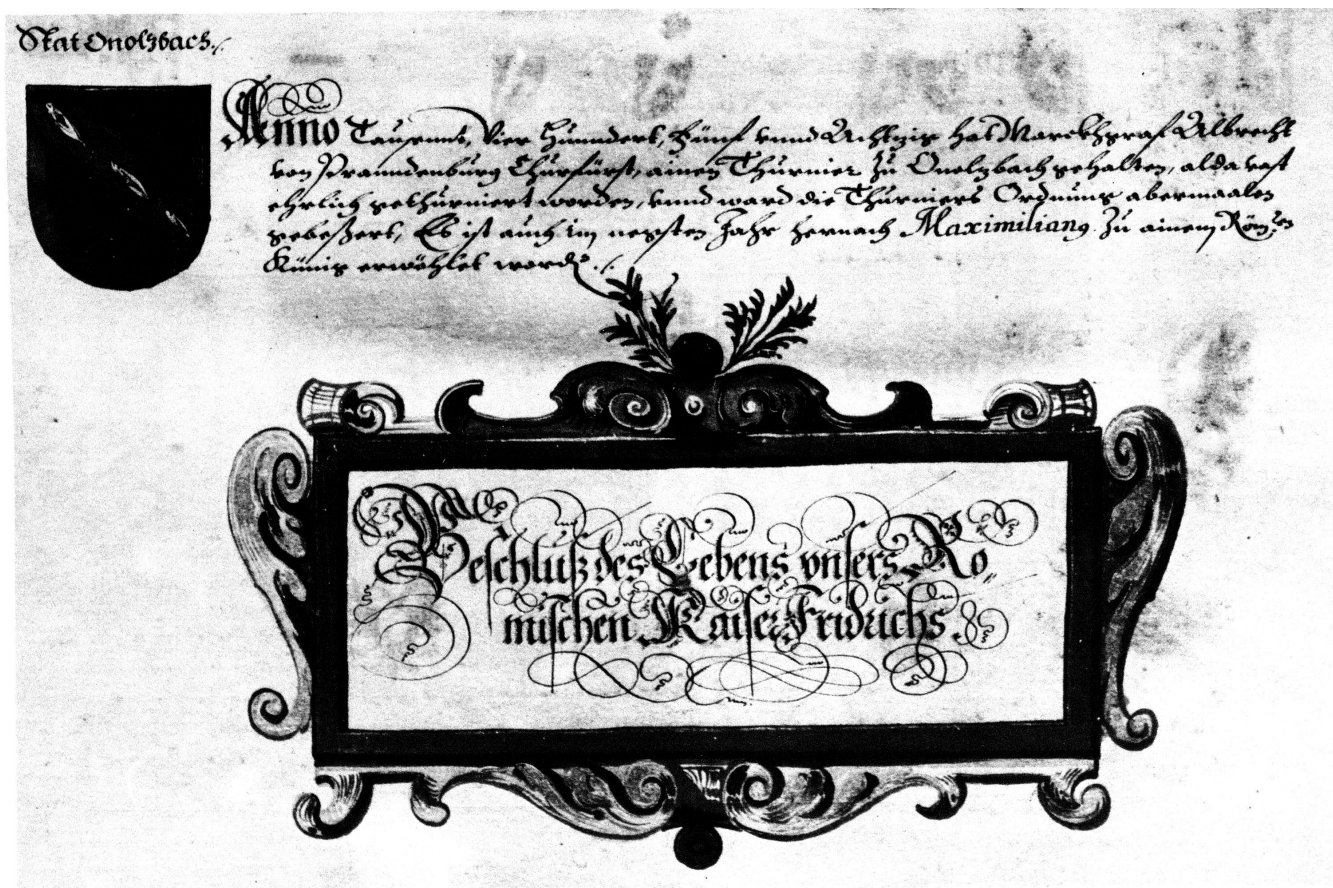 Stat Onolzbach ./.
Anno Tausennt, Vier Hunndert, Fünf vnnd Achtzig hat Marckhgraf Albrecht
von Pranndenburg Churfürst, ainen Thurnier Zu Onolzbach gehalten, alda vast
ehrlich gethurniert worden, vnnd ward die Thurniers Ordnung abermaalen
gebeßert, Es ist auch im negsten Jahr hernach Maximilianus Zu ainem Röm:en
Künig erwöhlet word
Beschluß des Lebens vnsers Ro„
mischen Kaiser Fridrichs